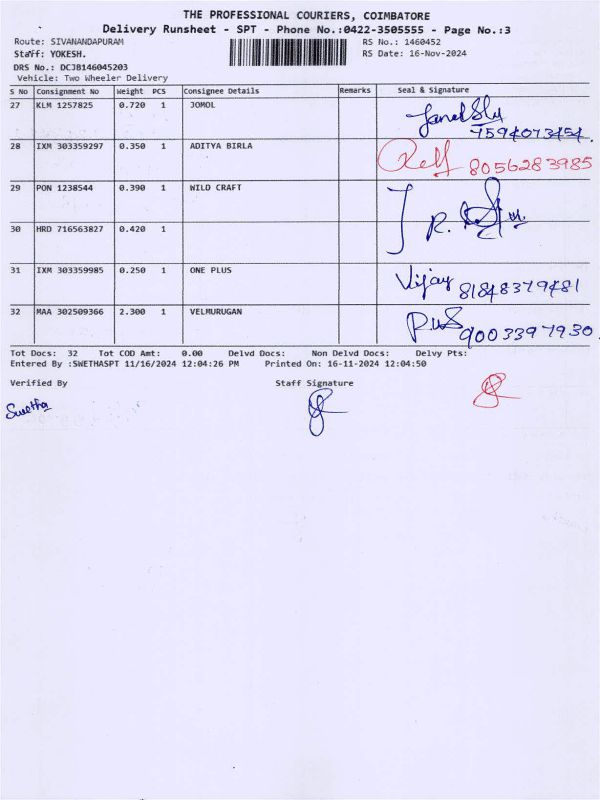 THE PROFESSIONAL COURIERS, COIMBATORE
Delivery Runsheet - SPT - Phone No.:0422-3505555 - Page No.:3
Route: SIVANANDAPURAM RS No.: 1460452
Staff: YOKESH. RS Date: 16-Nov-2024
DRS No.: DCJB146045203
Vehicle: Two Wheeler Delivery
S No Consignment No Weight PCS Consignee Details Remarks Seal & Signature
27 KLM 1257825 0.720 1 JOMOL
7594073454.
28 IXM 303359297 0.350 1 ADITYA BIRLA
8056283985
29 PON 1238544 0.390 1 WILD CRAFT
30 HRD 716563827 0.420 1
31 IXM 303359985 0.250 1 ONE PLUS Vijay 81848379481
32 MAA 302509366 2.300 1 VELMURUGAN
9003397930
Tot Docs: 32 Tot COD Amt: 0.00 Delvd Docs: Non Delvd Docs: Delvy Pts:
Entered By :SWETHASPT 11/16/2024 12:04:26 PM Printed On: 16-11-2024 12:04:50
Verified By Staff Signature
Swetha